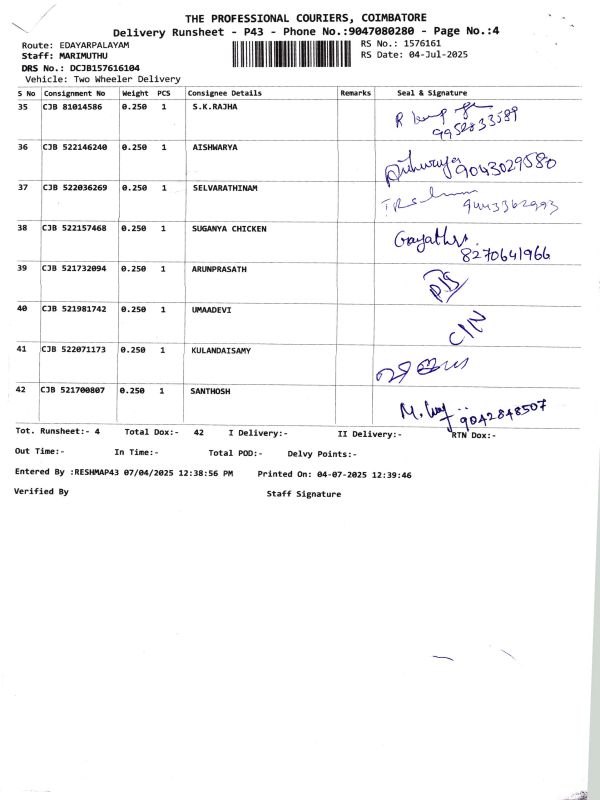 THE PROFESSIONAL COURIERS, COIMBATORE
Delivery Runsheet - P43 - Phone No.:9047080280 - Page No.:4
Route: EDAYARPALAYAM RS No.: 1576161
Staff: MARIMUTHU RS Date: 04-Jul-2025
DRS No.: DCJB157616104
Vehicle: Two Wheeler Delivery
S No Consignment No Weight PCS Consignee Details Remarks Seal & Signature
35 CJB 81014586 0.250 1 S.K.RAJHA
9952833589
36 CJB 522146240 0.250 1 AISHWARYA
Aishwarya 9043029580
37 CJB 522036269 0.250 1 SELVARATHINAM
9443362993
38 CJB 522157468 0.250 1 SUGANYA CHICKEN
Gayathri
8270641966
39 CJB 521732094 0.250 1 ARUNPRASATH
40 CJB 521981742 0.250 1 UMAADEVI
C/N
41 CJB 522071173 0.250 1 KULANDAISAMY
42 CJB 521700807 0.250 1 SANTHOSH
9042848507
Tot. Runsheet:- 4 Total Dox:- 42 I Delivery:- II Delivery:- RTN Dox:-
Out Time:- In Time:- Total POD:- Delvy Points:-
Entered By :RESHMAP43 07/04/2025 12:38:56 PM Printed On: 04-07-2025 12:39:46
Verified By Staff Signature